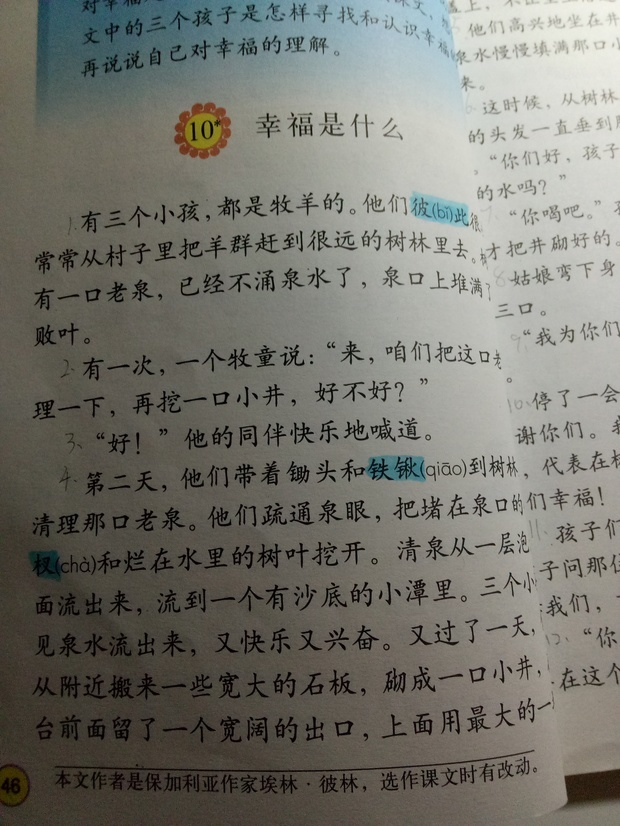 对幸福
文中的三个孩子是怎样寻找和认识幸福
再说说自己对幸福的理解。
10* 幸福是什么
1.有三个小孩，都是牧羊的。他们彼(bǐ)此很
常常从村子里把羊群赶到很远的树林里去。树
有一口老泉，已经不涌泉水了，泉口上堆满了
败叶。
2.有一次，一个牧童说：“来，咱们把这口老
理一下，再挖一口小井，好不好？”
3.“好！”他的同伴快乐地喊道。
4.第二天，他们带着锄头和铁锹(qiāo)到树林
清理那口老泉。他们疏通泉眼，把堵在泉口的
杈(chà)和烂在水里的树叶挖开。清泉从一层泡
面流出来，流到一个有沙底的小潭里。三个小
见泉水流出来，又快乐又兴奋。又过了一天，
从附近搬来一些宽大的石板，砌成一口小井，
台前面留了一个宽阔的出口，上面用最大的一
46 本文作者是保加利亚作家埃林·彼林，选作课文时有改动。
他们高兴地坐在井
泉水慢慢填满那口小
来。
这时候，从树林
的头发一直垂到
“你们好，孩子
的水吗？”
7.“你喝吧。”
才把井砌好的。
8.姑娘弯下身
三口。
9.“我为你们
。
10.停了一会
谢你们。我
，代表在树
们幸福！
11.孩子们
子问那位
我们，
12.“你
在这个